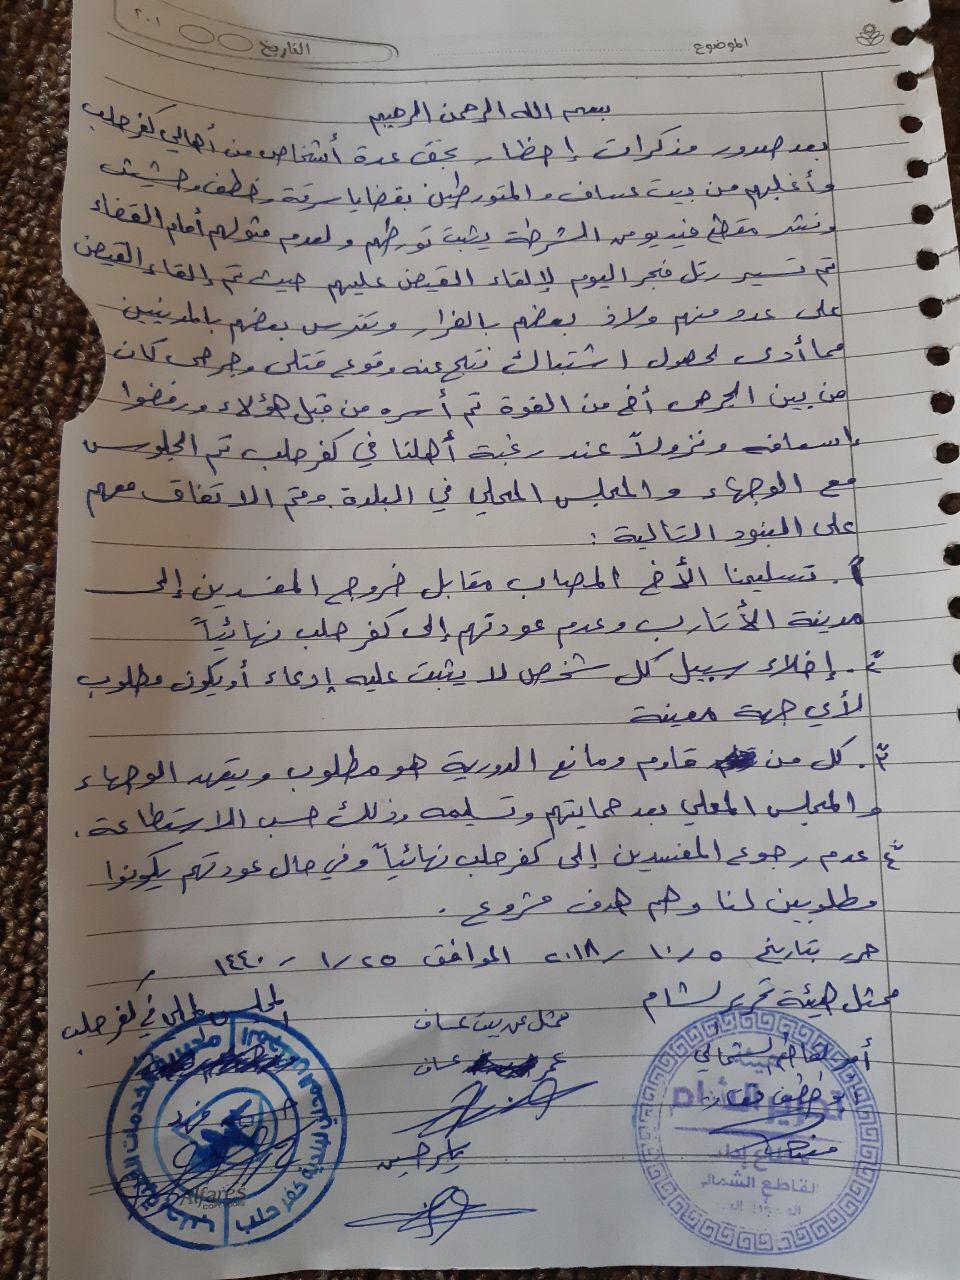 الموضوع
التاريخ
٢٠١
بسم الله الرحمن الرحيم
بعد صدور مذكرات إحظار بحق عدة أشخاص من أهالي كفر حلب
وأغلبهم من بيت عساف والمتورطين بقضايا سرقة وخطف وحشيش
ونشر مقطع فيديو من الشرطة يثبت تورطهم ولعدم مثولهم أمام القضاء
تم تسيير رتل فجر اليوم لإلقاء القبض عليهم حيث تم إلقاء القبض
على عدد منهم ولاذ بعضهم بالفرار وتترس بعضهم بالمدنيين
مما أدى لحصول اشتباك نتج عنه وقوع قتلى وجرحى كان
من بين الجرحى أخ من القوة تم أسره من قبل هؤلاء ورفضوا
إسعافه ونزولاً عند رغبة أهلنا في كفر حلب تم الجلوس
مع الوجهاء والمجلس المحلي في البلدة وتم الاتفاق معهم
على البنود التالية :
١. تسليمنا الأخ المصاب مقابل خروج المفسدين إلى
مدينة الأتارب وعدم عودتهم إلى كفر حلب نهائياً
٢. إخلاء سبيل كل شخص لا يثبت عليه إدعاء أو يكون مطلوب
لأي جهة معينة
٣. كل من قاوم ومانع الدورية هو مطلوب ويتعهد الوجهاء
والمجلس المحلي بعد حمايتهم وتسليمه وذلك حسب الاستطاعة.
٤. عدم رجوع المفسدين إلى كفر حلب نهائياً وفي حال عودتهم يكونوا
مطلوبين لنا وهم هدف مشروع .
حرر بتاريخ ٥ / ١٠ / ٢٠١٨ الموافق ٢٥ / ١ / ١٤٤٠
ممثل هيئة تحرير الشام
ممثل عن بيت عساف
المجلس المحلي في كفر حلب
القاطع الشمالي
عمر عساف
ياسر حسين
تحرير الشام
قطاع إدلب
القاطع الشمالي
Alfares